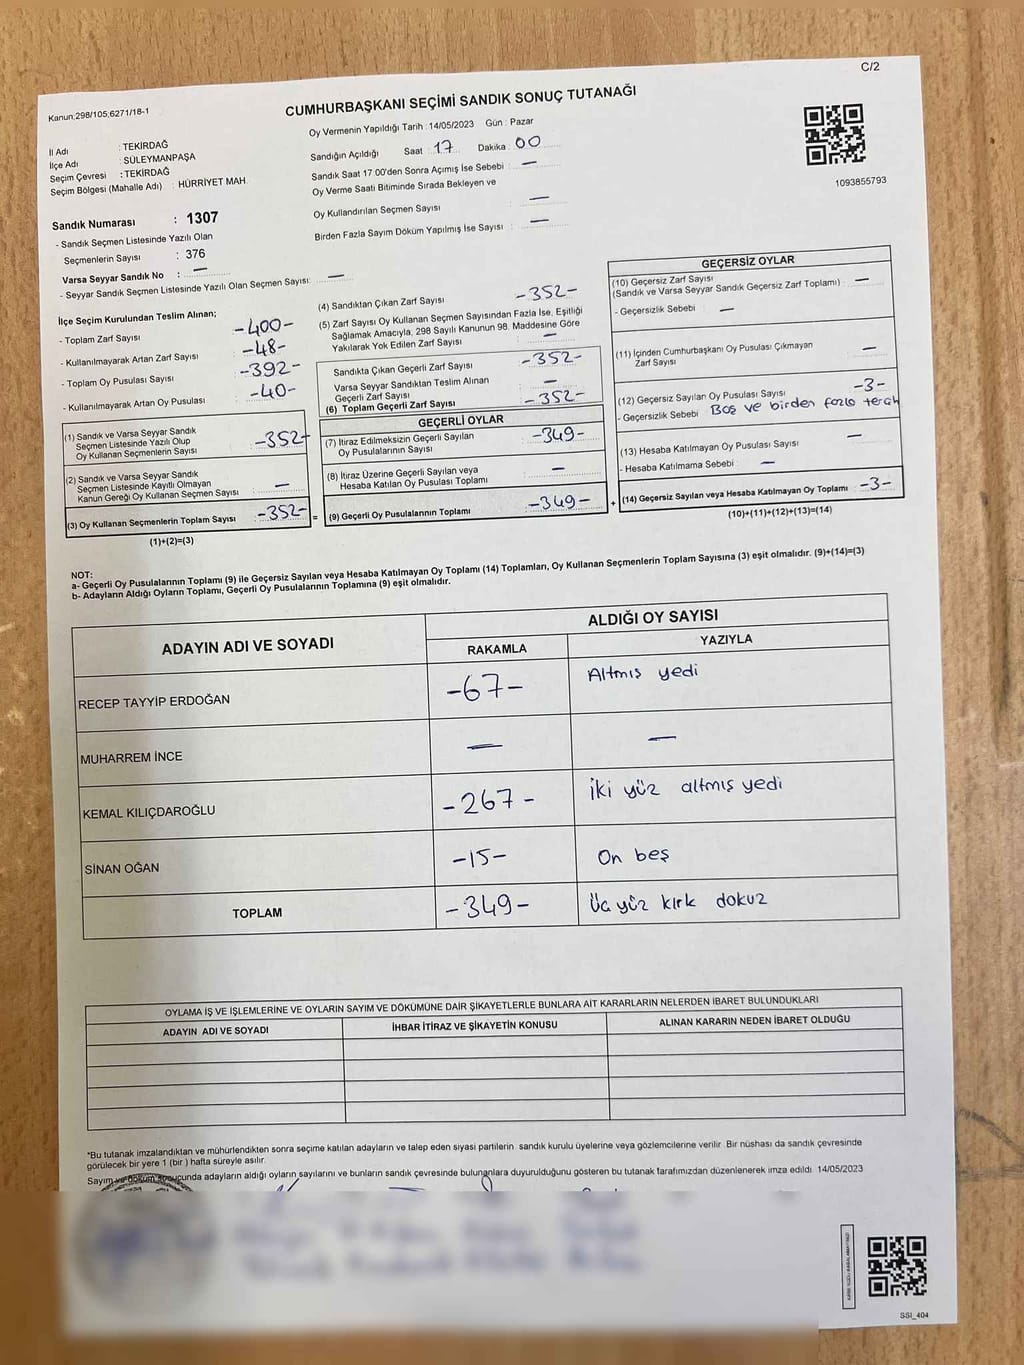 C/2
Kanun:298/105;6271/18-1
CUMHURBAŞKANI SEÇİMİ SANDIK SONUÇ TUTANAĞI
Oy Vermenin Yapıldığı Tarih : 14/05/2023 Gün : Pazar
İl Adı : TEKİRDAĞ
İlçe Adı : SÜLEYMANPAŞA
Seçim Çevresi : TEKİRDAĞ
Seçim Bölgesi (Mahalle Adı) : HÜRRİYET MAH.
Sandığın Açıldığı Saat : 17 Dakika : 00
Sandık Saat 17 00'den Sonra Açımış İse Sebebi : —
Oy Verme Saati Bitiminde Sırada Bekleyen ve
Oy Kullandırılan Seçmen Sayısı : —
Birden Fazla Sayım Döküm Yapılmış İse Sayısı : —
1093855793
Sandık Numarası : 1307
- Sandık Seçmen Listesinde Yazılı Olan
Seçmenlerin Sayısı : 376
Varsa Seyyar Sandık No : —
- Seyyar Sandık Seçmen Listesinde Yazılı Olan Seçmen Sayısı: —
İlçe Seçim Kurulundan Teslim Alınan;
- Toplam Zarf Sayısı -400-
- Kullanılmayarak Artan Zarf Sayısı -48-
- Toplam Oy Pusulası Sayısı -392-
- Kullanılmayarak Artan Oy Pusulası -40-
(1) Sandık ve Varsa Seyyar Sandık
Seçmen Listesinde Yazılı Olup
Oy Kullanan Seçmenlerin Sayısı -352-
(2) Sandık ve Varsa Seyyar Sandık
Seçmen Listesinde Kayıtlı Olmayan
Kanun Gereği Oy Kullanan Seçmen Sayısı —
(3) Oy Kullanan Seçmenlerin Toplam Sayısı -352-
(1)+(2)=(3)
(4) Sandıktan Çıkan Zarf Sayısı -352-
(5) Zarf Sayısı Oy Kullanan Seçmen Sayısından Fazla İse, Eşitliği
Sağlamak Amacıyla, 298 Sayılı Kanunun 98. Maddesine Göre
Yakılarak Yok Edilen Zarf Sayısı —
Sandıkta Çıkan Geçerli Zarf Sayısı -352-
Varsa Seyyar Sandıktan Teslim Alınan
Geçerli Zarf Sayısı —
(6) Toplam Geçerli Zarf Sayısı -352-
GEÇERLİ OYLAR
(7) İtiraz Edilmeksizin Geçerli Sayılan
Oy Pusulalarının Sayısı -349-
(8) İtiraz Üzerine Geçerli Sayılan veya
Hesaba Katılan Oy Pusulası Toplamı —
= (9) Geçerli Oy Pusulalarının Toplamı -349-
GEÇERSİZ OYLAR
(10) Geçersiz Zarf Sayısı
(Sandık ve Varsa Seyyar Sandık Geçersiz Zarf Toplamı) —
- Geçersizlik Sebebi —
(11) İçinden Cumhurbaşkanı Oy Pusulası Çıkmayan
Zarf Sayısı —
(12) Geçersiz Sayılan Oy Pusulası Sayısı -3-
- Geçersizlik Sebebi Boş ve birden fazla tercih
(13) Hesaba Katılmayan Oy Pusulası Sayısı —
- Hesaba Katılmama Sebebi —
+ (14) Geçersiz Sayılan veya Hesaba Katılmayan Oy Toplamı -3-
(10)+(11)+(12)+(13)=(14)
NOT:
a- Geçerli Oy Pusulalarının Toplamı (9) ile Geçersiz Sayılan veya Hesaba Katılmayan Oy Toplamı (14) Toplamları, Oy Kullanan Seçmenlerin Toplam Sayısına (3) eşit olmalıdır. (9)+(14)=(3)
b- Adayların Aldığı Oyların Toplamı, Geçerli Oy Pusulalarının Toplamına (9) eşit olmalıdır.
ADAYIN ADI VE SOYADI ALDIĞI OY SAYISI
RAKAMLA YAZIYLA
RECEP TAYYİP ERDOĞAN -67- Altmış yedi
MUHARREM İNCE — —
KEMAL KILIÇDAROĞLU -267- İki yüz altmış yedi
SİNAN OĞAN -15- On beş
TOPLAM -349- Üç yüz kırk dokuz
OYLAMA İŞ VE İŞLEMLERİNE VE OYLARIN SAYIM VE DÖKÜMÜNE DAİR ŞİKAYETLERLE BUNLARA AİT KARARLARIN NELERDEN İBARET BULUNDUKLARI
ADAYIN ADI VE SOYADI İHBAR İTİRAZ VE ŞİKAYETİN KONUSU ALINAN KARARIN NEDEN İBARET OLDUĞU
*Bu tutanak imzalandıktan ve mühürlendikten sonra seçime katılan adayların ve talep eden siyasi partilerin sandık kurulu üyelerine veya gözlemcilerine verilir. Bir nüshası da sandık çevresinde
görülecek bir yere 1 (bir ) hafta süreyle asılır.
Sayım ve döküm sonucunda adayların aldığı oyların sayılarını ve bunların sandık çevresinde bulunanlara duyurulduğunu gösteren bu tutanak tarafımızdan düzenlenerek imza edildi. 14/05/2023
SSI_404